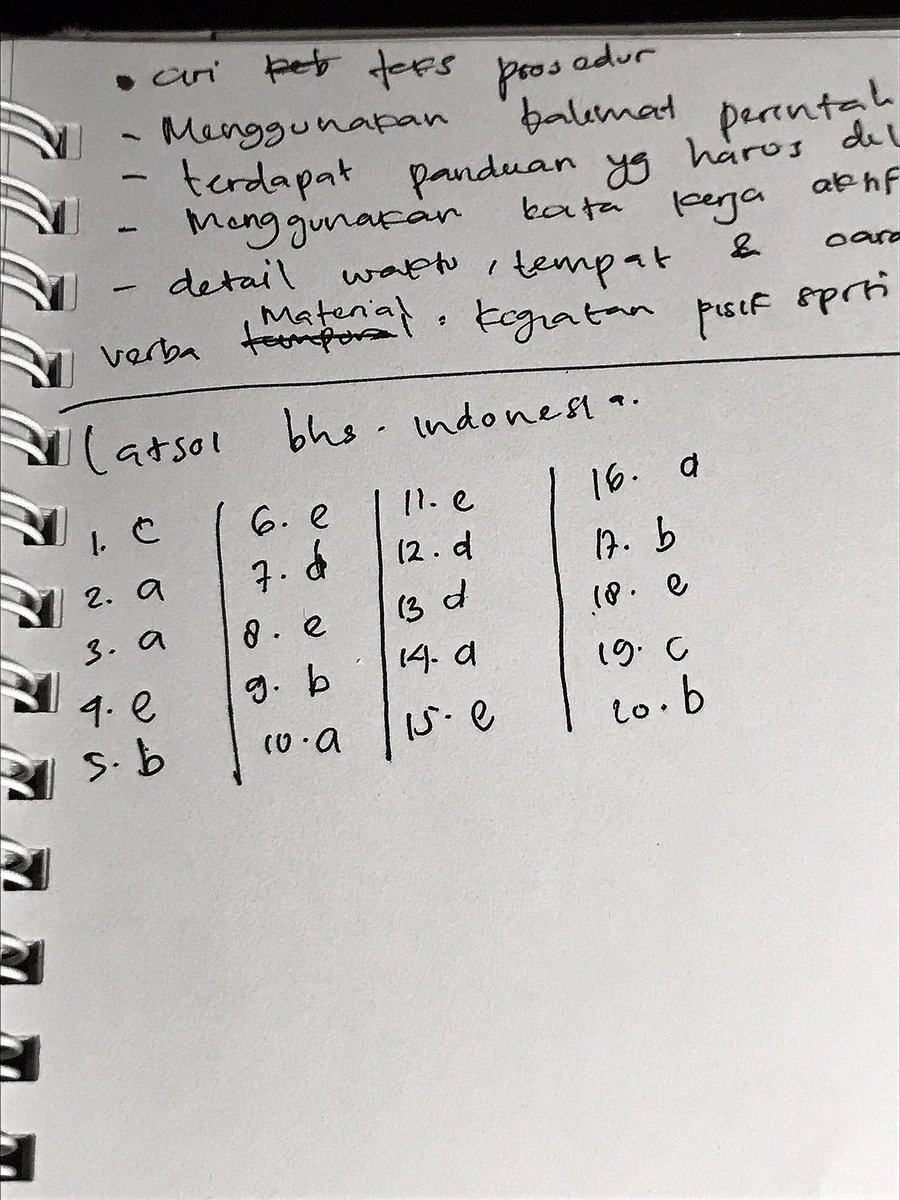 • ciri teks prosedur
- Menggunakan kalimat perintah
- terdapat panduan yg harus
- Menggunakan kata kerja aktif
- detail waktu, tempat & cara
verba Material : kegiatan fisik sprti
Latsol bhs. indonesia.
1. c
2. a
3. a
4. e
5. b
6. e
7. d
8. e
9. b
10. a
11. e
12. d
13 d
14. a
15. e
16. a
17. b
18. e
19. c
20. b